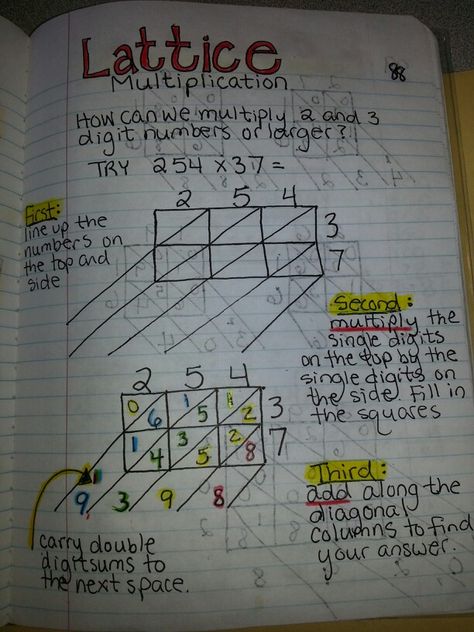 Lattice
88
Multiplication
How can we multiply 2 and 3
digit numbers or larger?
TRY 254 x 37 =
First:
line up the
numbers on
the top and
side
2 5 4
3
7
Second:
multiply the
single digits
on the top by the
single digits on
the side. Fill in
the squares
2 5 4
0 6 1 5 1 2 3
1 4 3 5 2 8 7
1
9, 3 9 8
Third:
add along the
diagonal
columns to find
your answer.
carry double
digit sums to
the next space.